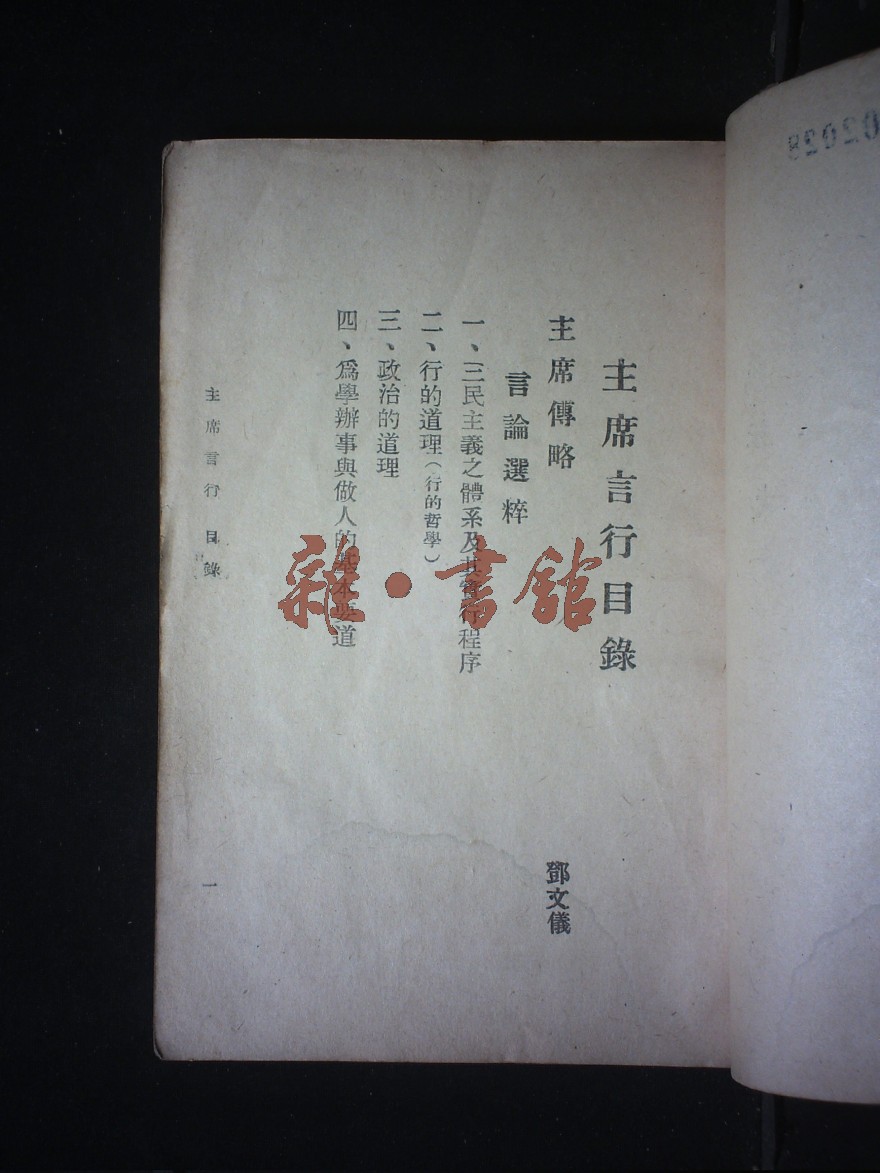 主席言行目錄
主席傳略
鄧文儀
言論選粹
一、三民主義之體系及其實行程序
二、行的道理（行的哲學）
三、政治的道理
四、爲學辦事與做人的基本要道
主席言行 目錄
一
雜·書館